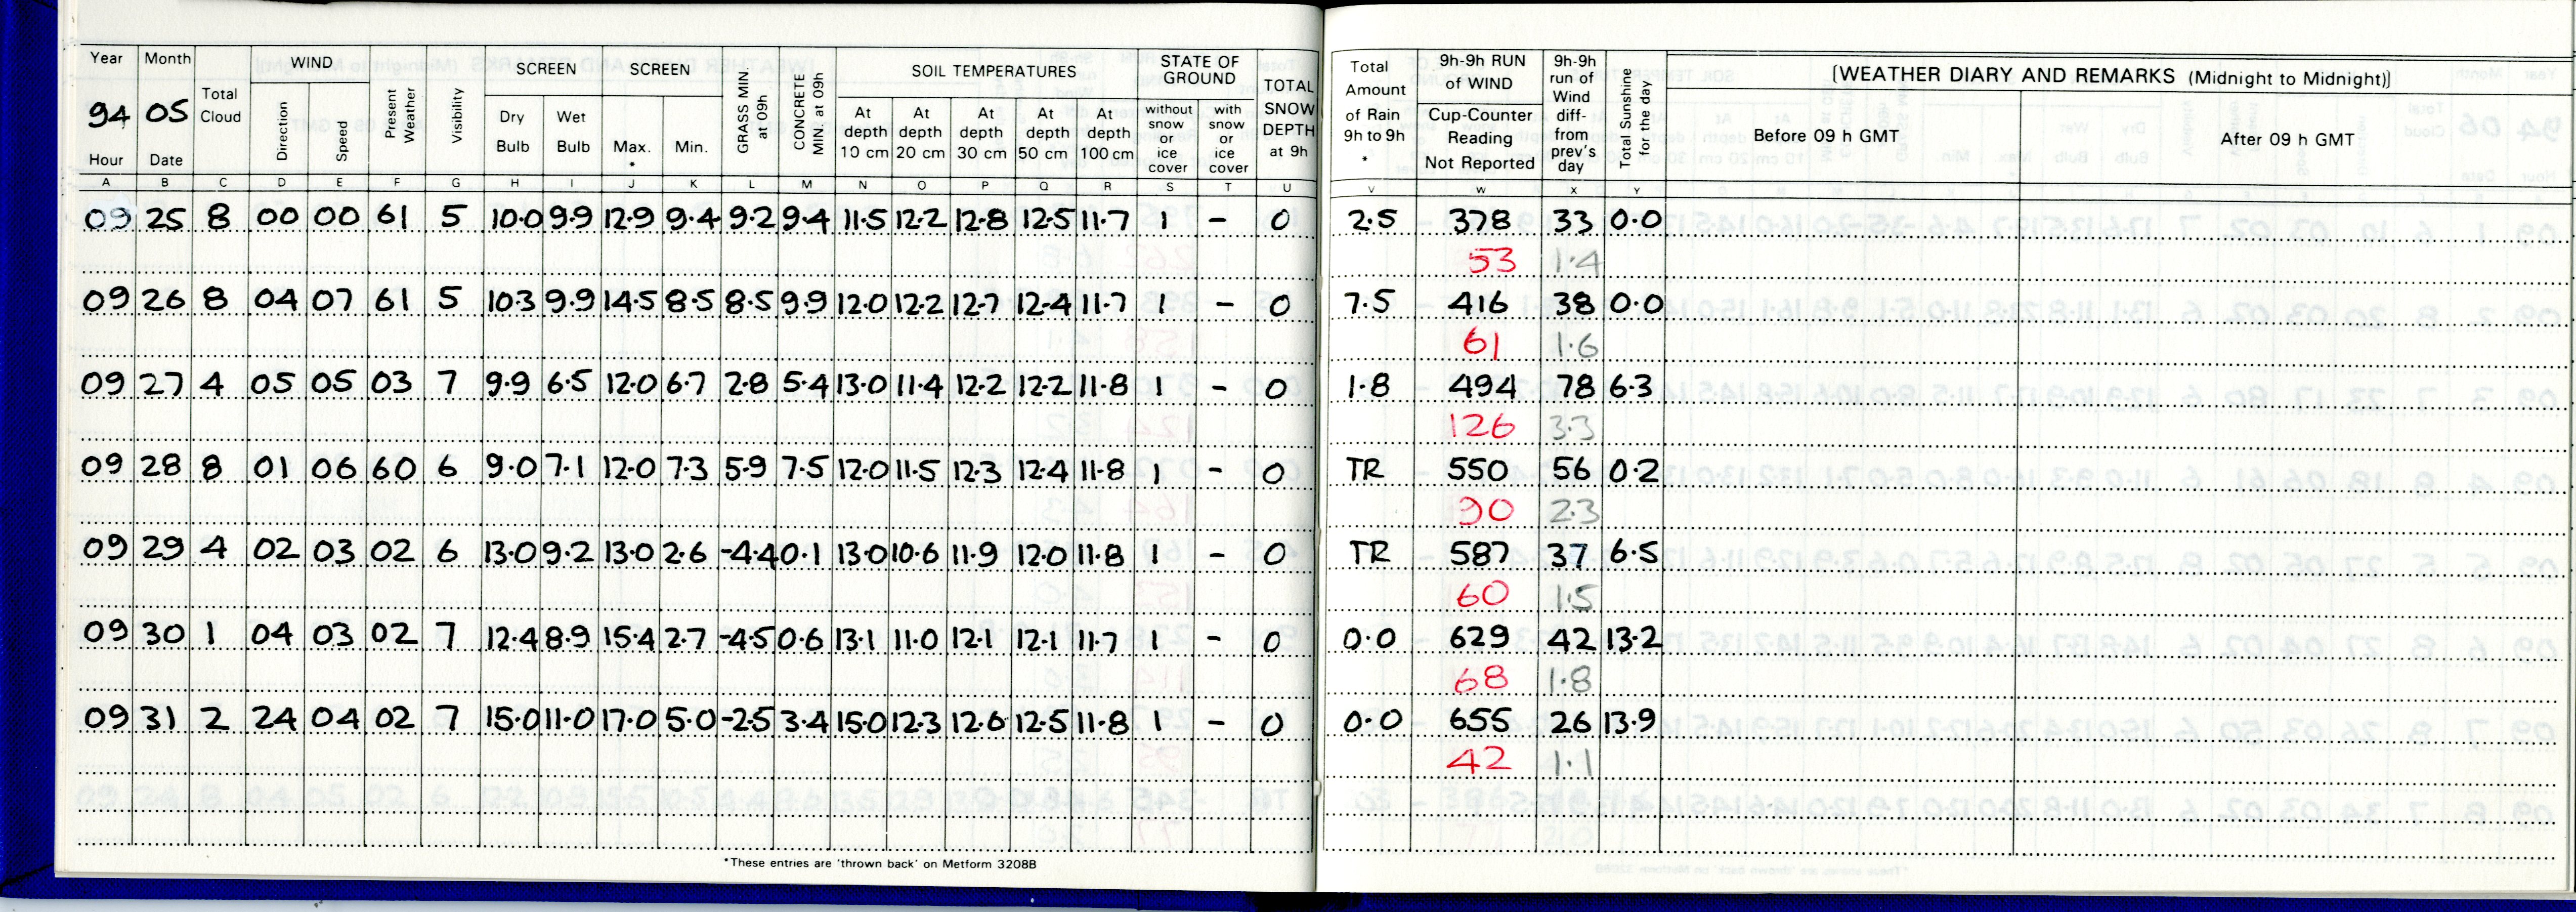 Year Month WIND SCREEN SCREEN SOIL TEMPERATURES STATE OF GROUND
94 05 Total Cloud Direction Speed Present Weather Visibility Dry Bulb Wet Bulb Max. * Min. GRASS MIN. at 09h CONCRETE MIN. at 09h At depth 10 cm At depth 20 cm At depth 30 cm At depth 50 cm At depth 100 cm without snow or ice cover with snow or ice cover TOTAL SNOW DEPTH at 9h
Hour Date
A B C D E F G H I J K L M N O P Q R S T U
09 25 8 00 00 61 5 10.0 9.9 12.9 9.4 9.2 9.4 11.5 12.2 12.8 12.5 11.7 1 – 0
09 26 8 04 07 61 5 10.3 9.9 14.5 8.5 8.5 9.9 12.0 12.2 12.7 12.4 11.7 1 – 0
09 27 4 05 05 03 7 9.9 6.5 12.0 6.7 2.8 5.4 13.0 11.4 12.2 12.2 11.8 1 – 0
09 28 8 01 06 60 6 9.0 7.1 12.0 7.3 5.9 7.5 12.0 11.5 12.3 12.4 11.8 1 – 0
09 29 4 02 03 02 6 13.0 9.2 13.0 2.6 -4.4 0.1 13.0 10.6 11.9 12.0 11.8 1 – 0
09 30 1 04 03 02 7 12.4 8.9 15.4 2.7 -4.5 0.6 13.1 11.0 12.1 12.1 11.7 1 – 0
09 31 2 24 04 02 7 15.0 11.0 17.0 5.0 -2.5 3.4 15.0 12.3 12.6 12.5 11.8 1 – 0
*These entries are 'thrown back' on Metform 3208B
Total Amount of Rain 9h to 9h * 9h-9h RUN of WIND Cup-Counter Reading Not Reported 9h-9h run of Wind diff- from prev's day Total Sunshine for the day [WEATHER DIARY AND REMARKS (Midnight to Midnight)]
Before 09 h GMT After 09 h GMT
V W X Y
2.5 378 33 0.0
53 1.4
7.5 416 38 0.0
61 1.6
1.8 494 78 6.3
126 3.3
TR 550 56 0.2
90 2.3
TR 587 37 6.5
60 1.5
0.0 629 42 13.2
68 1.8
0.0 655 26 13.9
42 1.1